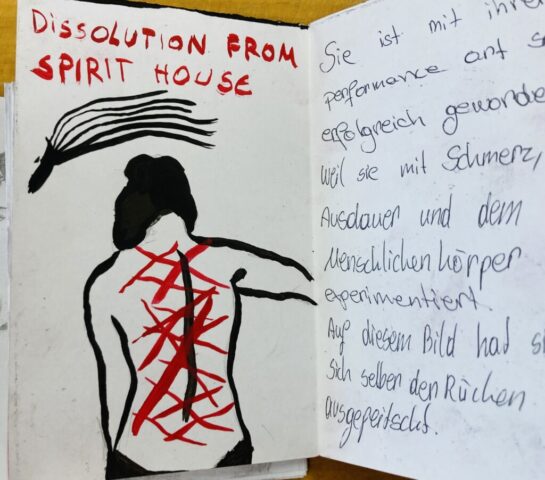 DISSOLUTION FROM
SPIRIT HOUSE
Sie ist mit ihre
performance art s
erfolgreich geworde
weil sie mit Schmerz,
Ausdauer und dem
Menschlichen körper
experimentiert.
Auf diesem Bild had s
sich selben den Rücken
ausgepeitscht.